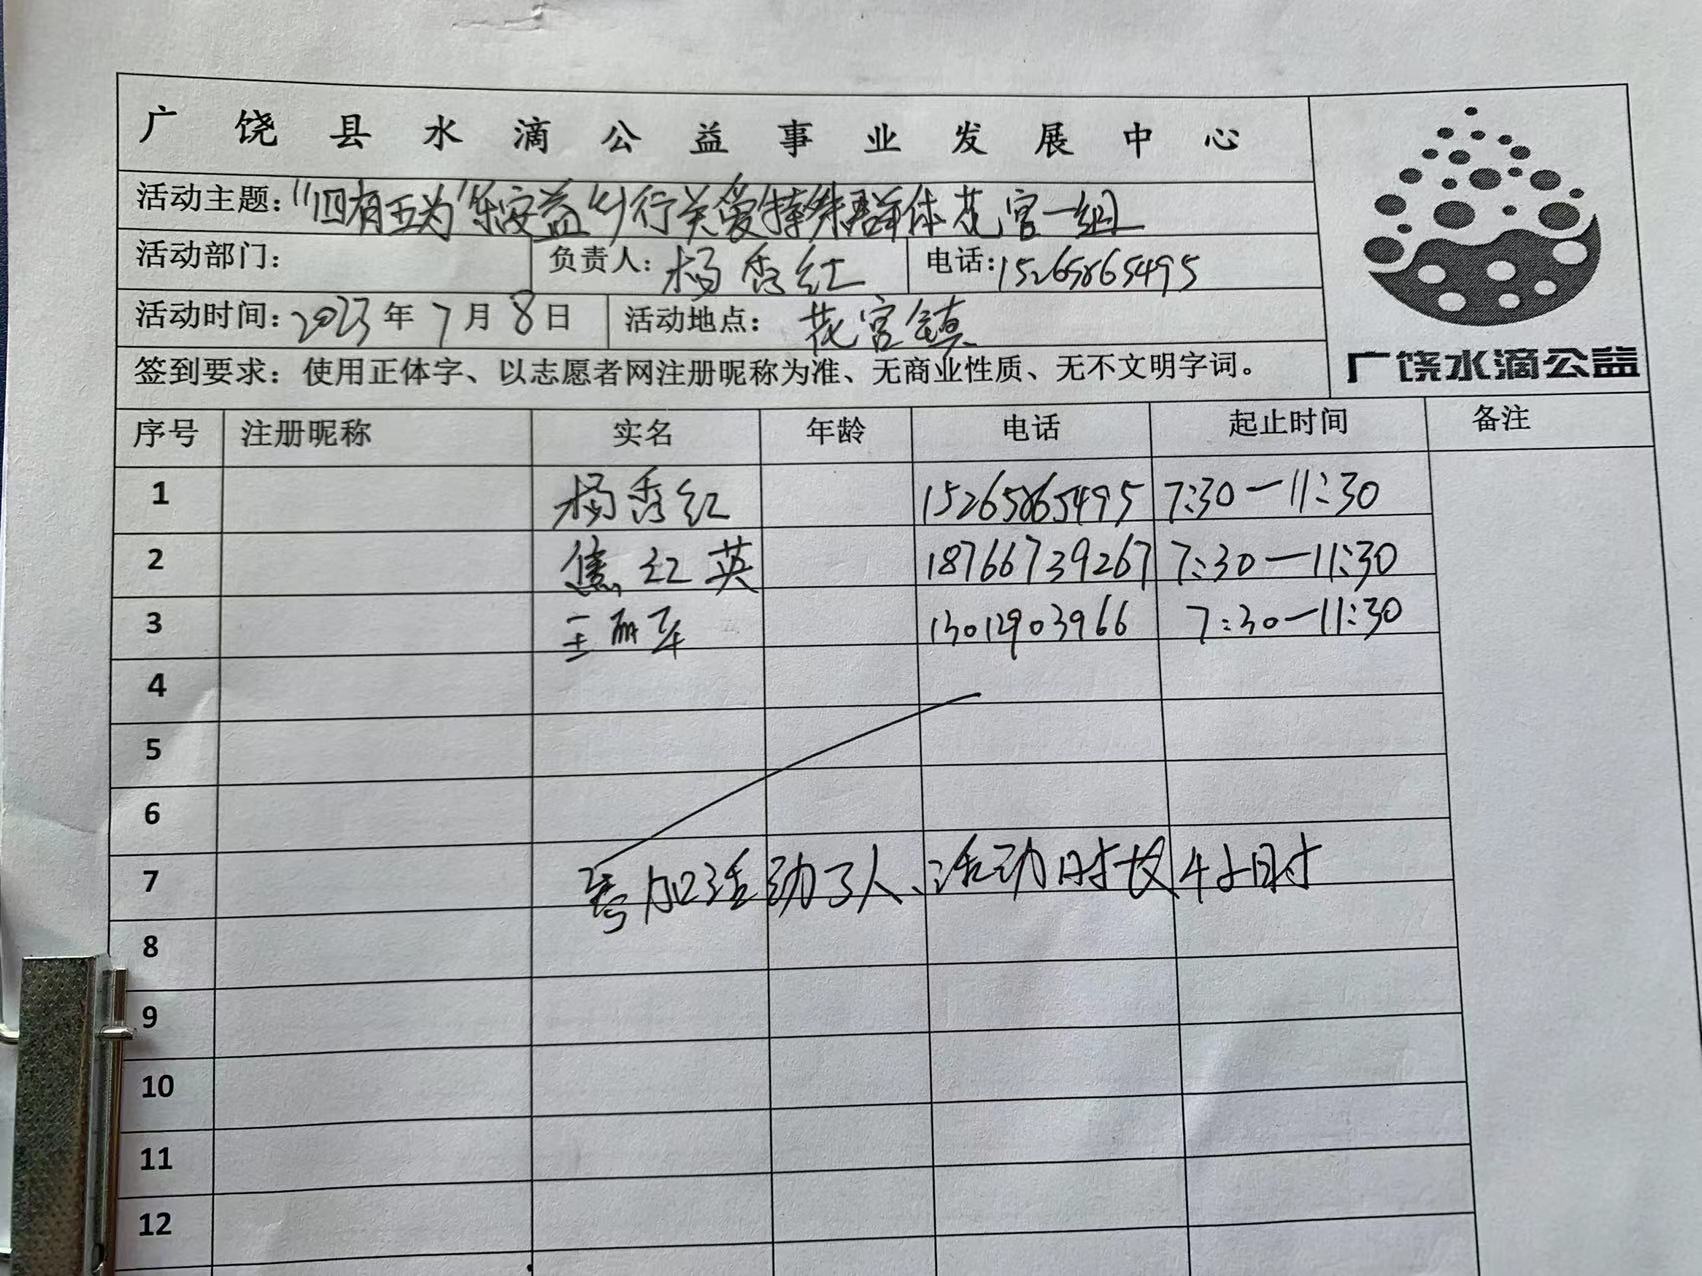 广饶县水滴公益事业发展中心
活动主题:"四有五为"乐安益乡行关爱特殊群体花官一组
活动部门: 负责人: 杨秀红 电话:15265865495
活动时间: 2023年7月8日 活动地点: 花官镇
签到要求: 使用正体字、以志愿者网注册昵称为准、无商业性质、无不文明字词。
广饶水滴公益
序号 注册昵称 实名 年龄 电话 起止时间 备注
1 杨秀红 15265865495 7:30一11:30
2 焦红英 18766739267 7:30一11:30
3 王丽军 13012903966 7:30一11:30
4
5
6
7 参加活动3人、活动时长4小时
8
9
10
11
12